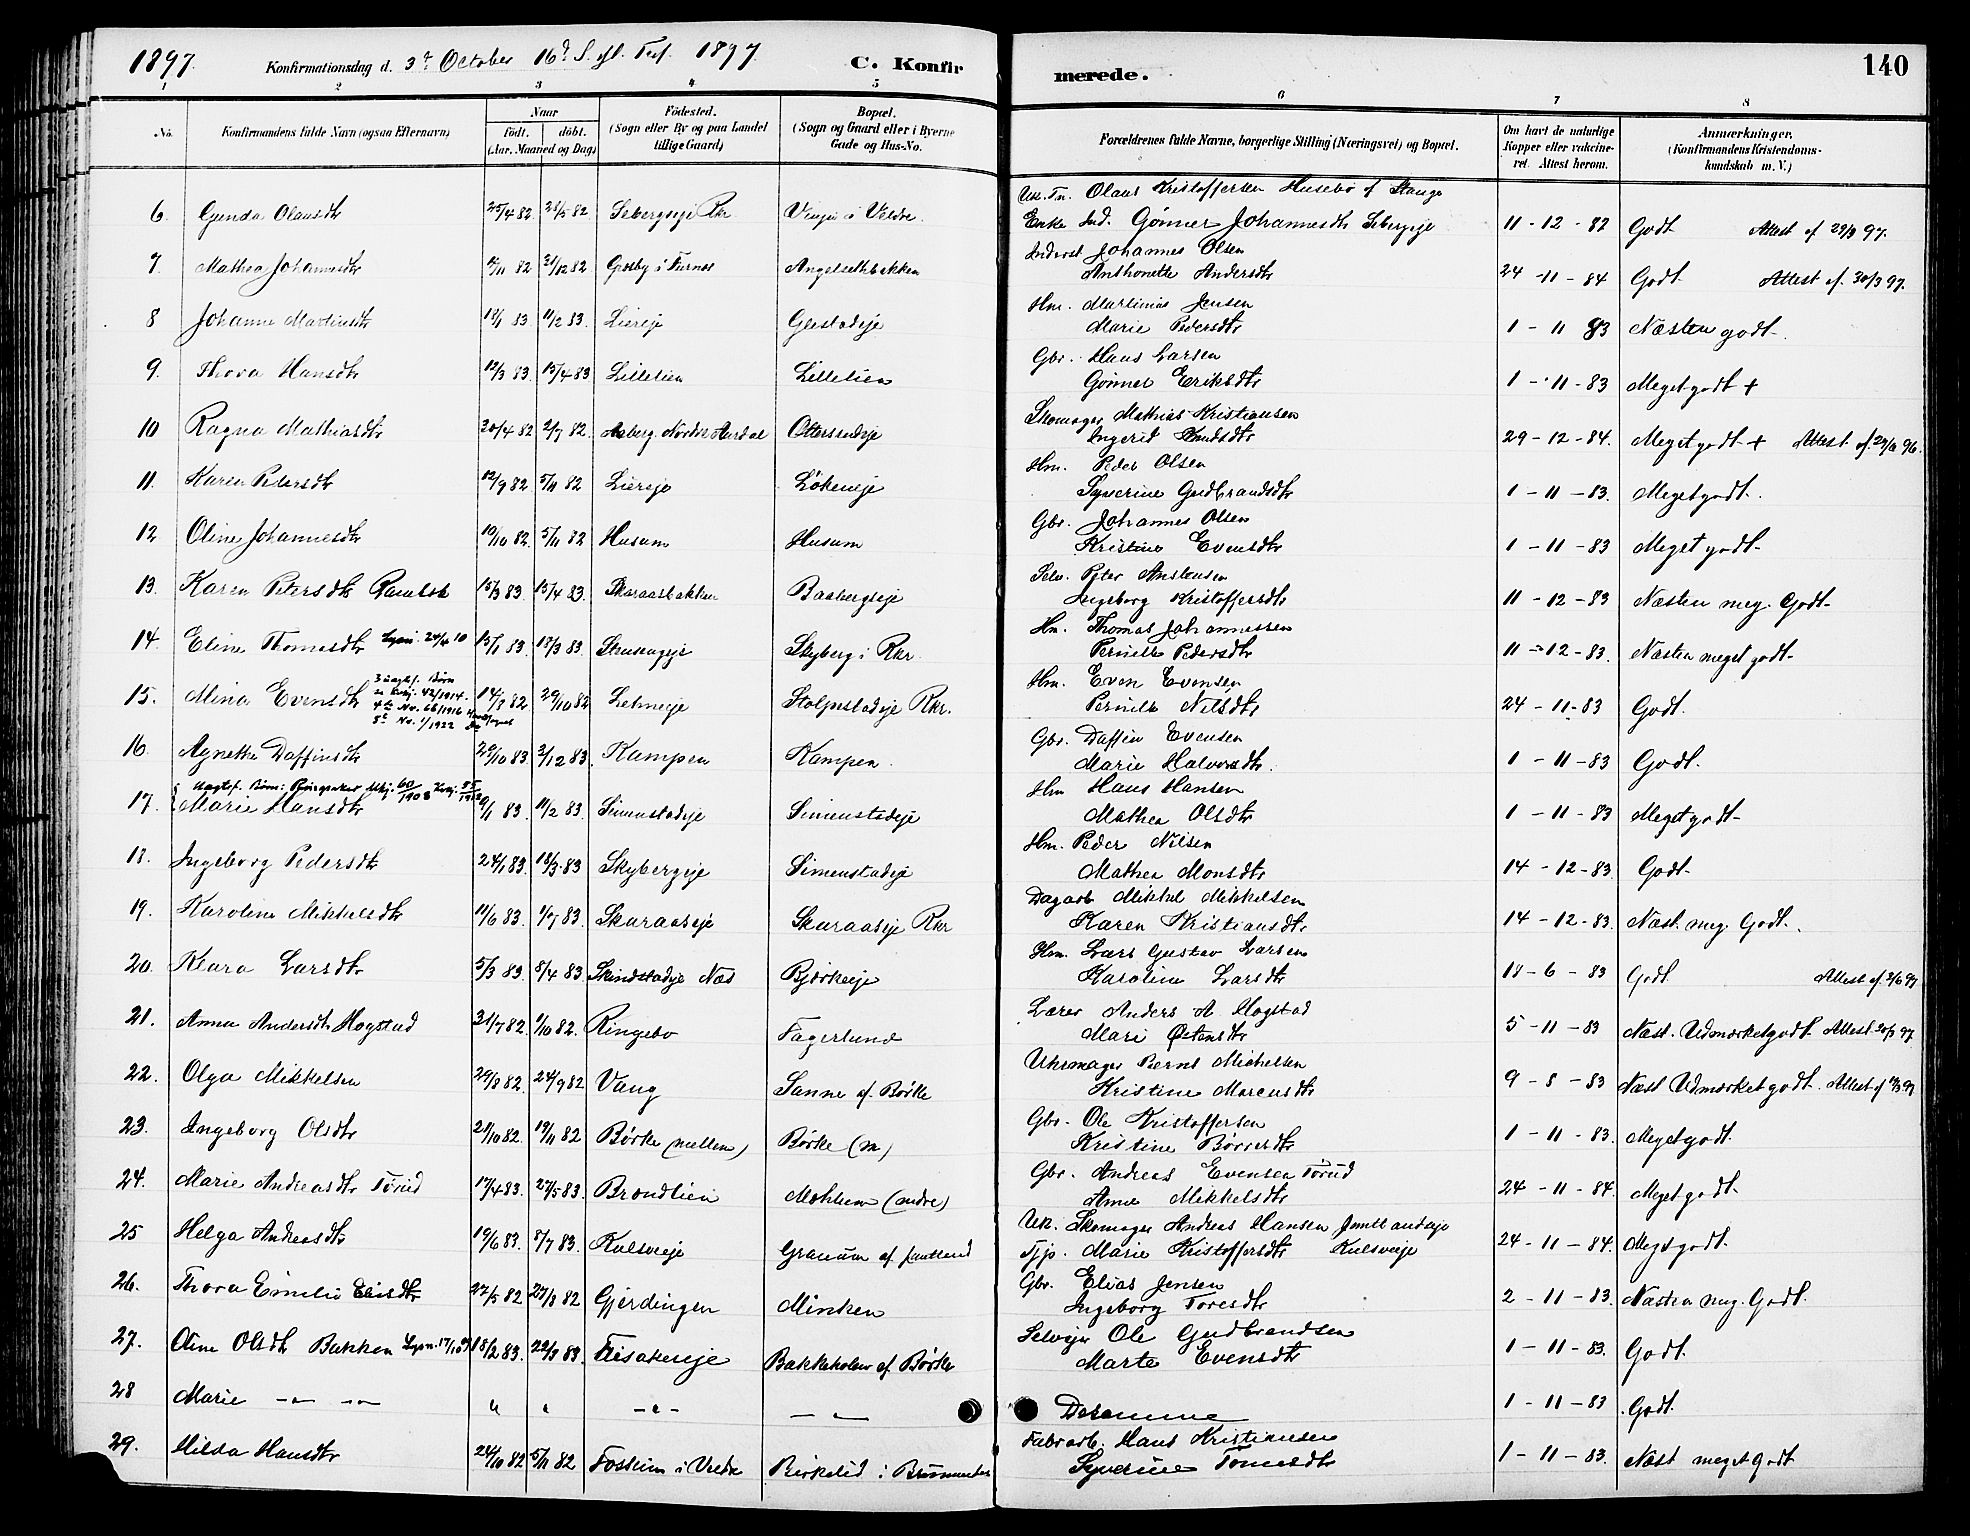 1897. Konfirmationsdag d. 3d October 16d S. efl. Tref. 1897 C. Konfirmerede. 140
1 2 3 4 5 6 7 8
No. Konfirmandens fulde Navn (ogsaa Efternavn) Naar født. døbt. (Aar, Maaned og Dag) Fødested. (Sogn eller By og paa Landet tillige Gaard) Bopæl. (Sogn og Gaard eller i Byerne Gade og Hus-No. Forældrenes fulde Navne, borgerlige Stilling (Næringsvei) og Bopæl. Om havt de naturlige Kopper eller vaccineret. Attest herom. Anmærkninger. (Konfirmandens Kristendomskundskab m. V.)
Olaus Kristoffersen Husebö af Stange
6. Gunda Olausdtr 25/4 82 28/5 82 Sebergseje Rkr i Veldre Enke Ind. Gønner Johannesdtr Sebergeje 11-12-82 Godt Attest af 29/3 97.
Inderst Johannes Olsen
7. Mathea Johannesdtr 82 31/12 82 i Furnes Angelsethbakken Anthonette Andersdtr 24-11-84 Godt Attest af. 30/3 97.
Hm. Martinius Jensen
8 Johanne Martinsdtr 18/1 83. 11/2 83. Liereje Glestadeje Marie Pedersdtr 1-11 83 Næsten godt.
Gbr. Hans Larsen
9. Thora Hansdtr 12/3 83. 15/4 83 Lillelien Lillelien Gönner Eriksdtr 1-11-83 Meget godt +
Skomager Mathias Kristiansen
10 Ragna Mathiasdtr 30/4 82 2/7 82. Aaberg. Nordre Aurdal Ottersrudeje Ingerid Knudsdtr 29-12-84. Meget godt + Attest af.
Hm. Peder Olsen
11. Karen Pedersdtr 12/9 82 5/11 82 Liereje Lökeneje Syverine Gudbrandsdtr 1-11-83. Meget godt.
Gbr. Johannes Olsen
12 Oline Johannesdtr 10/10 82. 5/11 82 Husum Husum Kristine Evensdtr 1-11-83 Meget godt.
Selv. Peter Anstensen
13. Karen Petersdtr 15/3 83. 15/4 83. Skaraasbakken Baabergseje Ingeborg Kristoffersdtr 11-12-83 Næsten meg. Godt.
Hm. Thomas Johannessen
14. Eline Thomasdtr 24/4 10 15/1 83. 18/3 83. Skyberg i Rkr. Pernille Pedersdtr 11-12-83. Næsten meget godt.
3 uægtef. Børn
42/1914.
Hm. Even Evensen
15. Mina Evensdtr 4de Nr. 66/1916 14/8 82 29/10 82 Stolpestadeje Rkr. Pernille Nilsdtr 24-11-83 Godt.
5te Nr. 1/1922
Gbr. Daffin Evensen
16. Agnethe Daffinsdtr 29/10 83 2/12 83. Kampen Kampen. Marie Halvorsdtr. 1-11-83 Godt.
Uægtef. Børn: Ringsaker 60/1908
Hm Hans Hansen
17. Marie Hansdtr 9/1 83. 11/2 83. Simenstadeje Simenstadeje Mathea Olsdtr 1-11-83 Meget godt.
Hm. Peder Nilsen
18. Ingeborg Pedersdtr 24/1 83. 18/3 83 Skybergeje Simenstadeje Mathea Monsdtr 14-12-83. Godt.
Dagarb Mikkel Mikkelsen
19. Karoline Mikkelsdtr 11/6 83. 1/7 83. Skaraaseje Skaraaseje Rkr Karen Kristiansdtr 14-12-83. Næst. meg. Godt.
Hm. Lars Gustav Larsen
20. Klara Larsdtr 5/3 83. 8/4 83 Skindstadeje Næs Bjørkeeje Karoline Larsdtr 18-6-83 Godt. Attest af. 2/6 97
Lærer Anders A. Hogstad
21. Anna Andersdtr Hogstad 31/7 82. 1/10 82. Ringebo Fagerlund Mari Østensdtr 5-11-83 Næst. Udmærket godt. Attest 97.
Uhrmager Bernt Michelsen
22. Olga Mikkelsen 29/8 82. 24/9 82 Vang Sanne af Børke Kristine Marcusdtr 9-8-83 Næst Udmærket godt. Attest af 97
Gbr. Ole Kristoffersen
23. Ingeborg Olsdtr 21/10 82. 19/11 82 Børke (mellem) Børke (m) Kristine Børresdtr 1-11-83. Meget godt.
Gbr. Andreas Evensen Törud
24. Marie Andreasdtr Törud 17/4 83. 27/5 83. Brondlien (andre) Anne Mikkelsdtr 24-11-84. Meget godt.
Skomager Andreas Hansen
25 Helga Andreasdtr 19/6 83. 8/7 83. Kulsveeje Granum af Marie Kristoffersdtr Kulsveeje 24-11-84. Meget godt.
Gbr. Elias Jensen
26. Thora Emilie Elisdtr 27/5 82 27/8 82 Gjerdingen Minken Ingeborg Toresdtr 2-11-83. Næsten meg. Godt.
Selvejer Ole Gudbrandsen
27. Oline Olsdtr Bakken 18/2 83. 22/3 83. Fisakereje Bakkeholen af Børke Marte Evensdtr 1-11-83. Godt.
28 Marie -"- -"- " " -"- -"- Desamme 1-11-83 Godt.
Fabrarb. Hans Kristiansen
29. Hilda Hansdtr 24/10 82 5/11 82 Fossum i Birkelid i Brummunddal Syverine 1-11-83. Næst meget godt